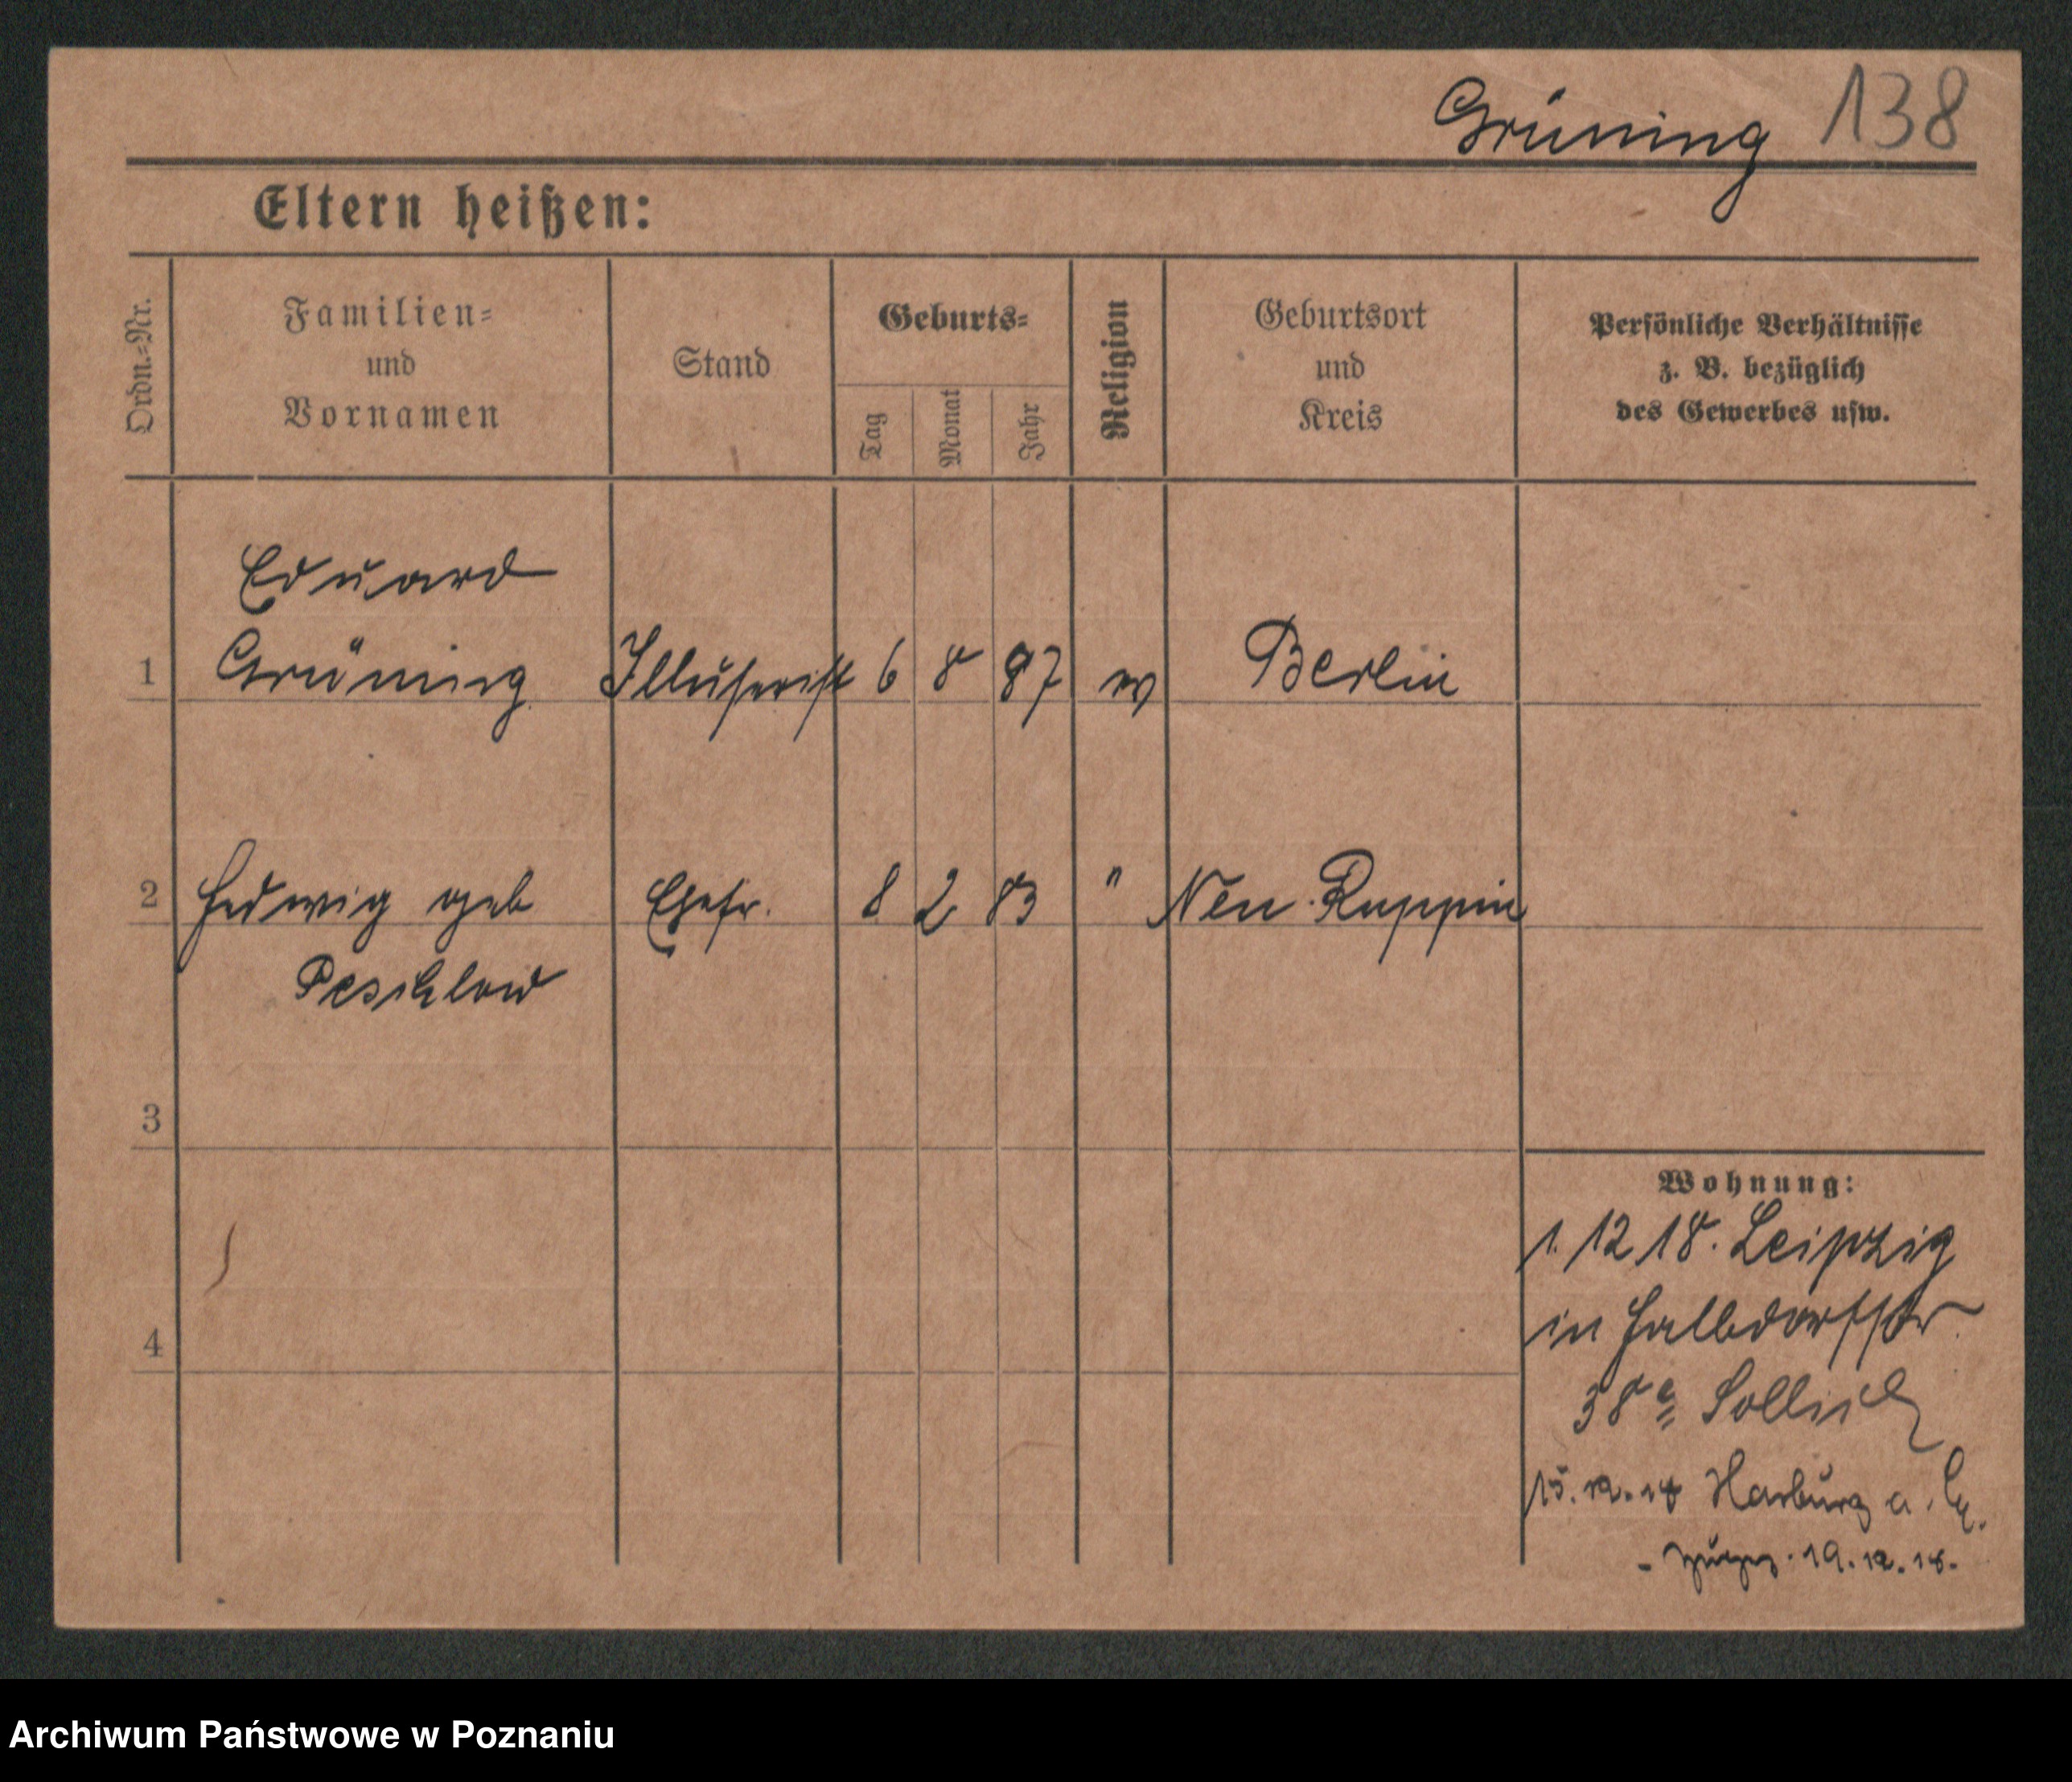 Grüning 138
Eltern heißen:
Ordn.-Nr.
Familien-
und
Vornamen
Stand
Geburts-
Tag
Monat
Jahr
Religion
Geburtsort
und
Kreis
Persönliche Verhältnisse
z. B. bezüglich
des Gewerbes usw.
Eduard
1 Grüning 6 8 87 ev Berlin
2 Hedwig geb Ehefr. 8 2 83 " Neu Ruppin
Peschlow
3
4
Wohnung:
1. 12 18. Leipzig
in Halbdorfstr
38a
15. 12. 18 Harburg a.
19. 12. 18.
Archiwum Państwowe w Poznaniu